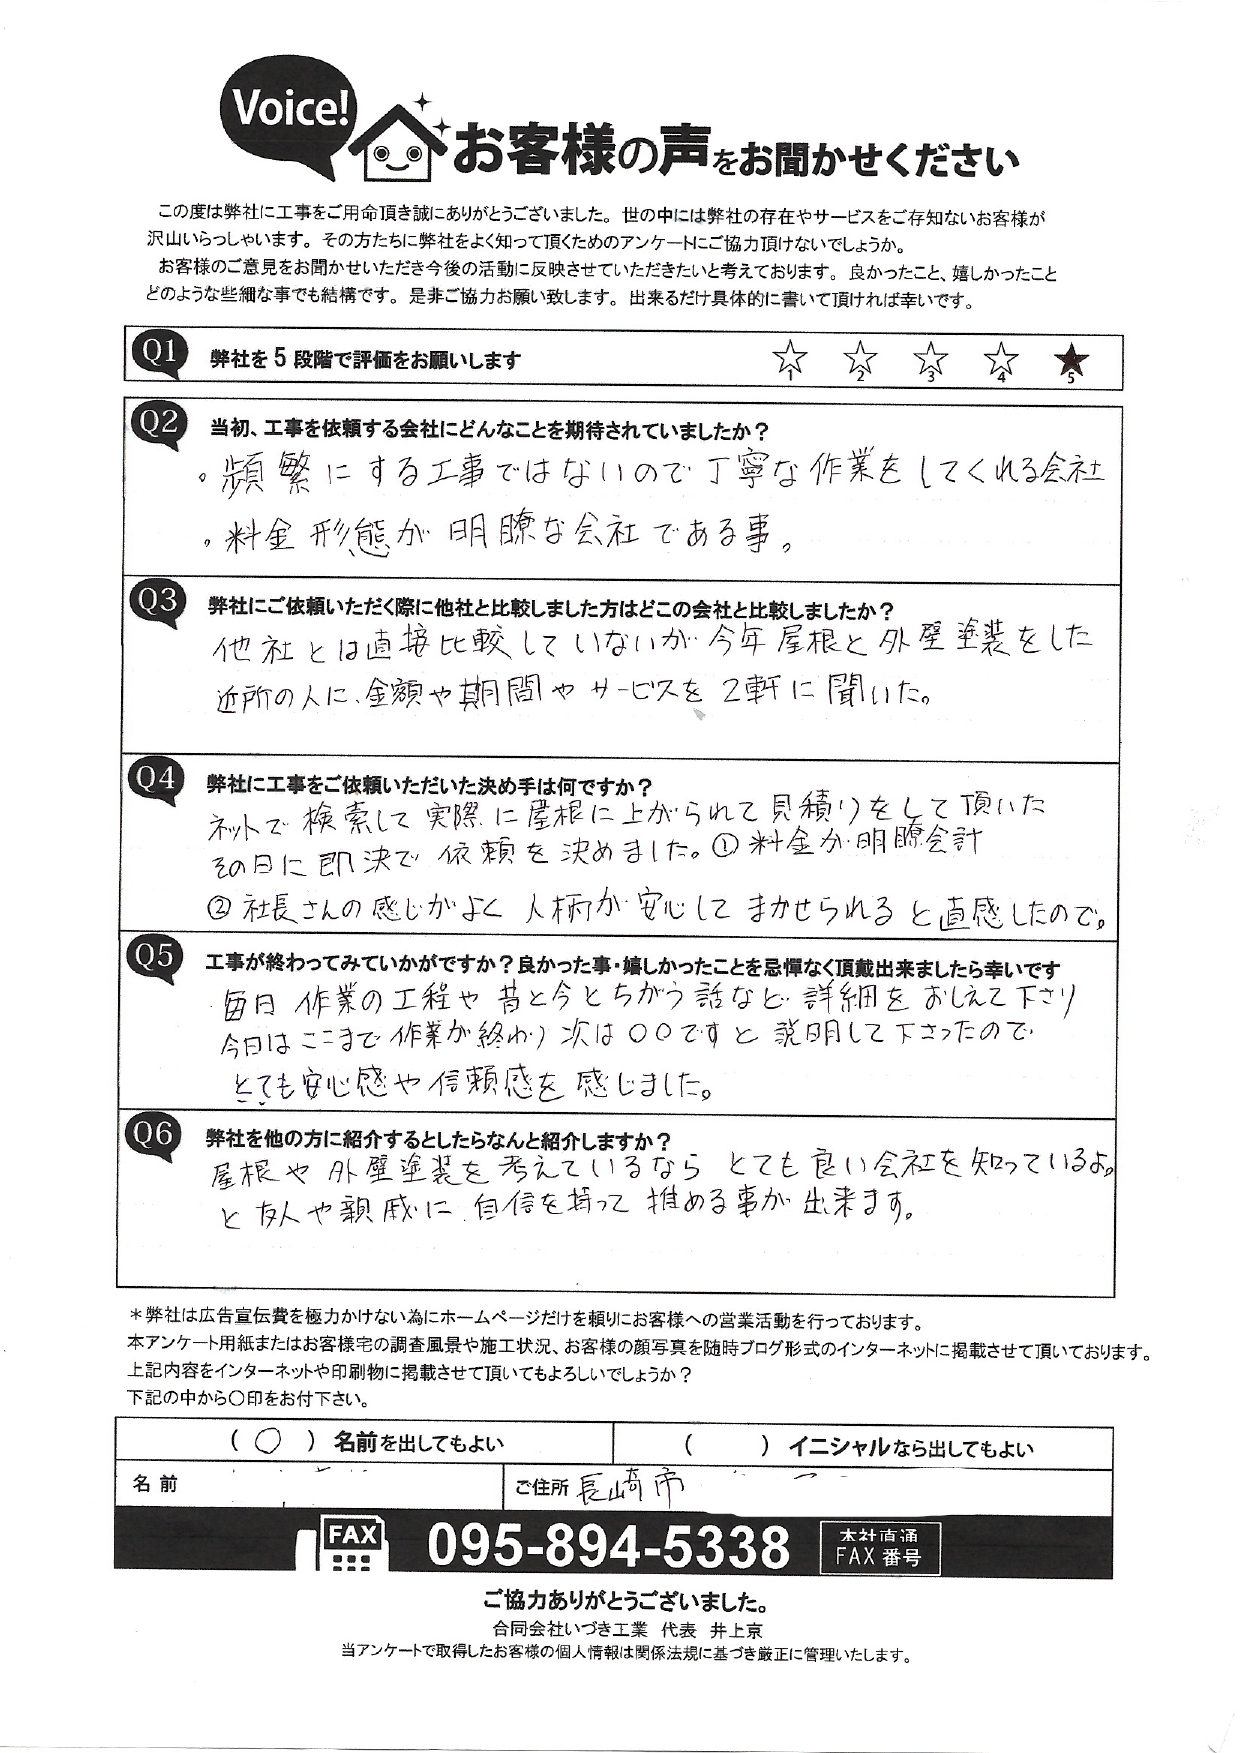 Voice!
お客様の声をお聞かせください
この度は弊社に工事をご用命頂き誠にありがとうございました。世の中には弊社の存在やサービスをご存知ないお客様が
沢山いらっしゃいます。その方たちに弊社をよく知って頂くためのアンケートにご協力頂けないでしょうか。
お客様のご意見をお聞かせいただき今後の活動に反映させていただきたいと考えております。良かったこと、嬉しかったこと
どのような些細な事でも結構です。是非ご協力お願い致します。出来るだけ具体的に書いて頂ければ幸いです。
Q1 弊社を5段階で評価をお願いします ☆1 ☆2 ☆3 ☆4 ★5
Q2 当初、工事を依頼する会社にどんなことを期待されていましたか？
。頻繁にする工事ではないので丁寧な作業をしてくれる会社
。料金形態が明瞭な会社である事。
Q3 弊社にご依頼いただく際に他社と比較しました方はどこの会社と比較しましたか？
他社とは直接比較していないが今年屋根と外壁塗装をした
近所の人に、金額や期間やサービスを2軒に聞いた。
Q4 弊社に工事をご依頼いただいた決め手は何ですか？
ネットで検索して実際に屋根に上がられて見積りをして頂いた
その日に即決で依頼を決めました。①料金が明瞭会計
②社長さんの感じがよく人柄が安心してまかせられると直感したので。
Q5 工事が終わってみていかがですか？良かった事・嬉しかったことを忌憚なく頂戴出来ましたら幸いです
毎日作業の工程や昔と今とちがう話など詳細をおしえて下さり
今日はここまで作業が終わり次は〇〇ですと説明して下さったので
とても安心感や信頼感を感じました。
Q6 弊社を他の方に紹介するとしたらなんと紹介しますか？
屋根や外壁塗装を考えているならとても良い会社を知っているよ。
と友人や親戚に自信を持って推める事が出来ます。
＊弊社は広告宣伝費を極力かけない為にホームページだけを頼りにお客様への営業活動を行っております。
本アンケート用紙またはお客様宅の調査風景や施工状況、お客様の顔写真を随時ブログ形式のインターネットに掲載させて頂いております。
上記内容をインターネットや印刷物に掲載させて頂いてもよろしいでしょうか？
下記の中から〇印をお付下さい。
（ 〇 ）名前を出してもよい （ ）イニシャルなら出してもよい
名前 ご住所 長崎市
FAX 095-894-5338 本社直通
FAX番号
ご協力ありがとうございました。
合同会社いづき工業 代表 井上京
当アンケートで取得したお客様の個人情報は関係法規に基づき厳正に管理いたします。